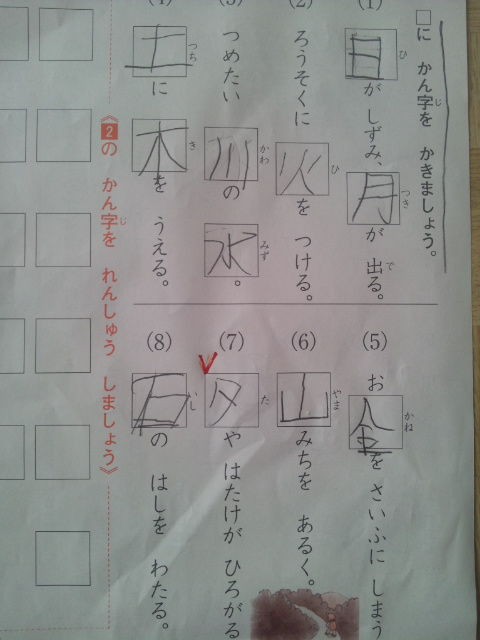 □に かん字を かきましょう。
じ
(1)
日が しずみ、月が 出る。
ひ つき で
(2)
ろうそくに 火を つける。
ひ
つめたい 川の 水。
かわ みず
土に 木を うえる。
つち き
(5)
お金を さいふに しまう
かね
(6)
山みちを あるく。
やま
(7)
夕や はたけが ひろがる
た
(8)
石の はしを わたる。
し
《2の かん字を れんしゅう しましょう》
じ